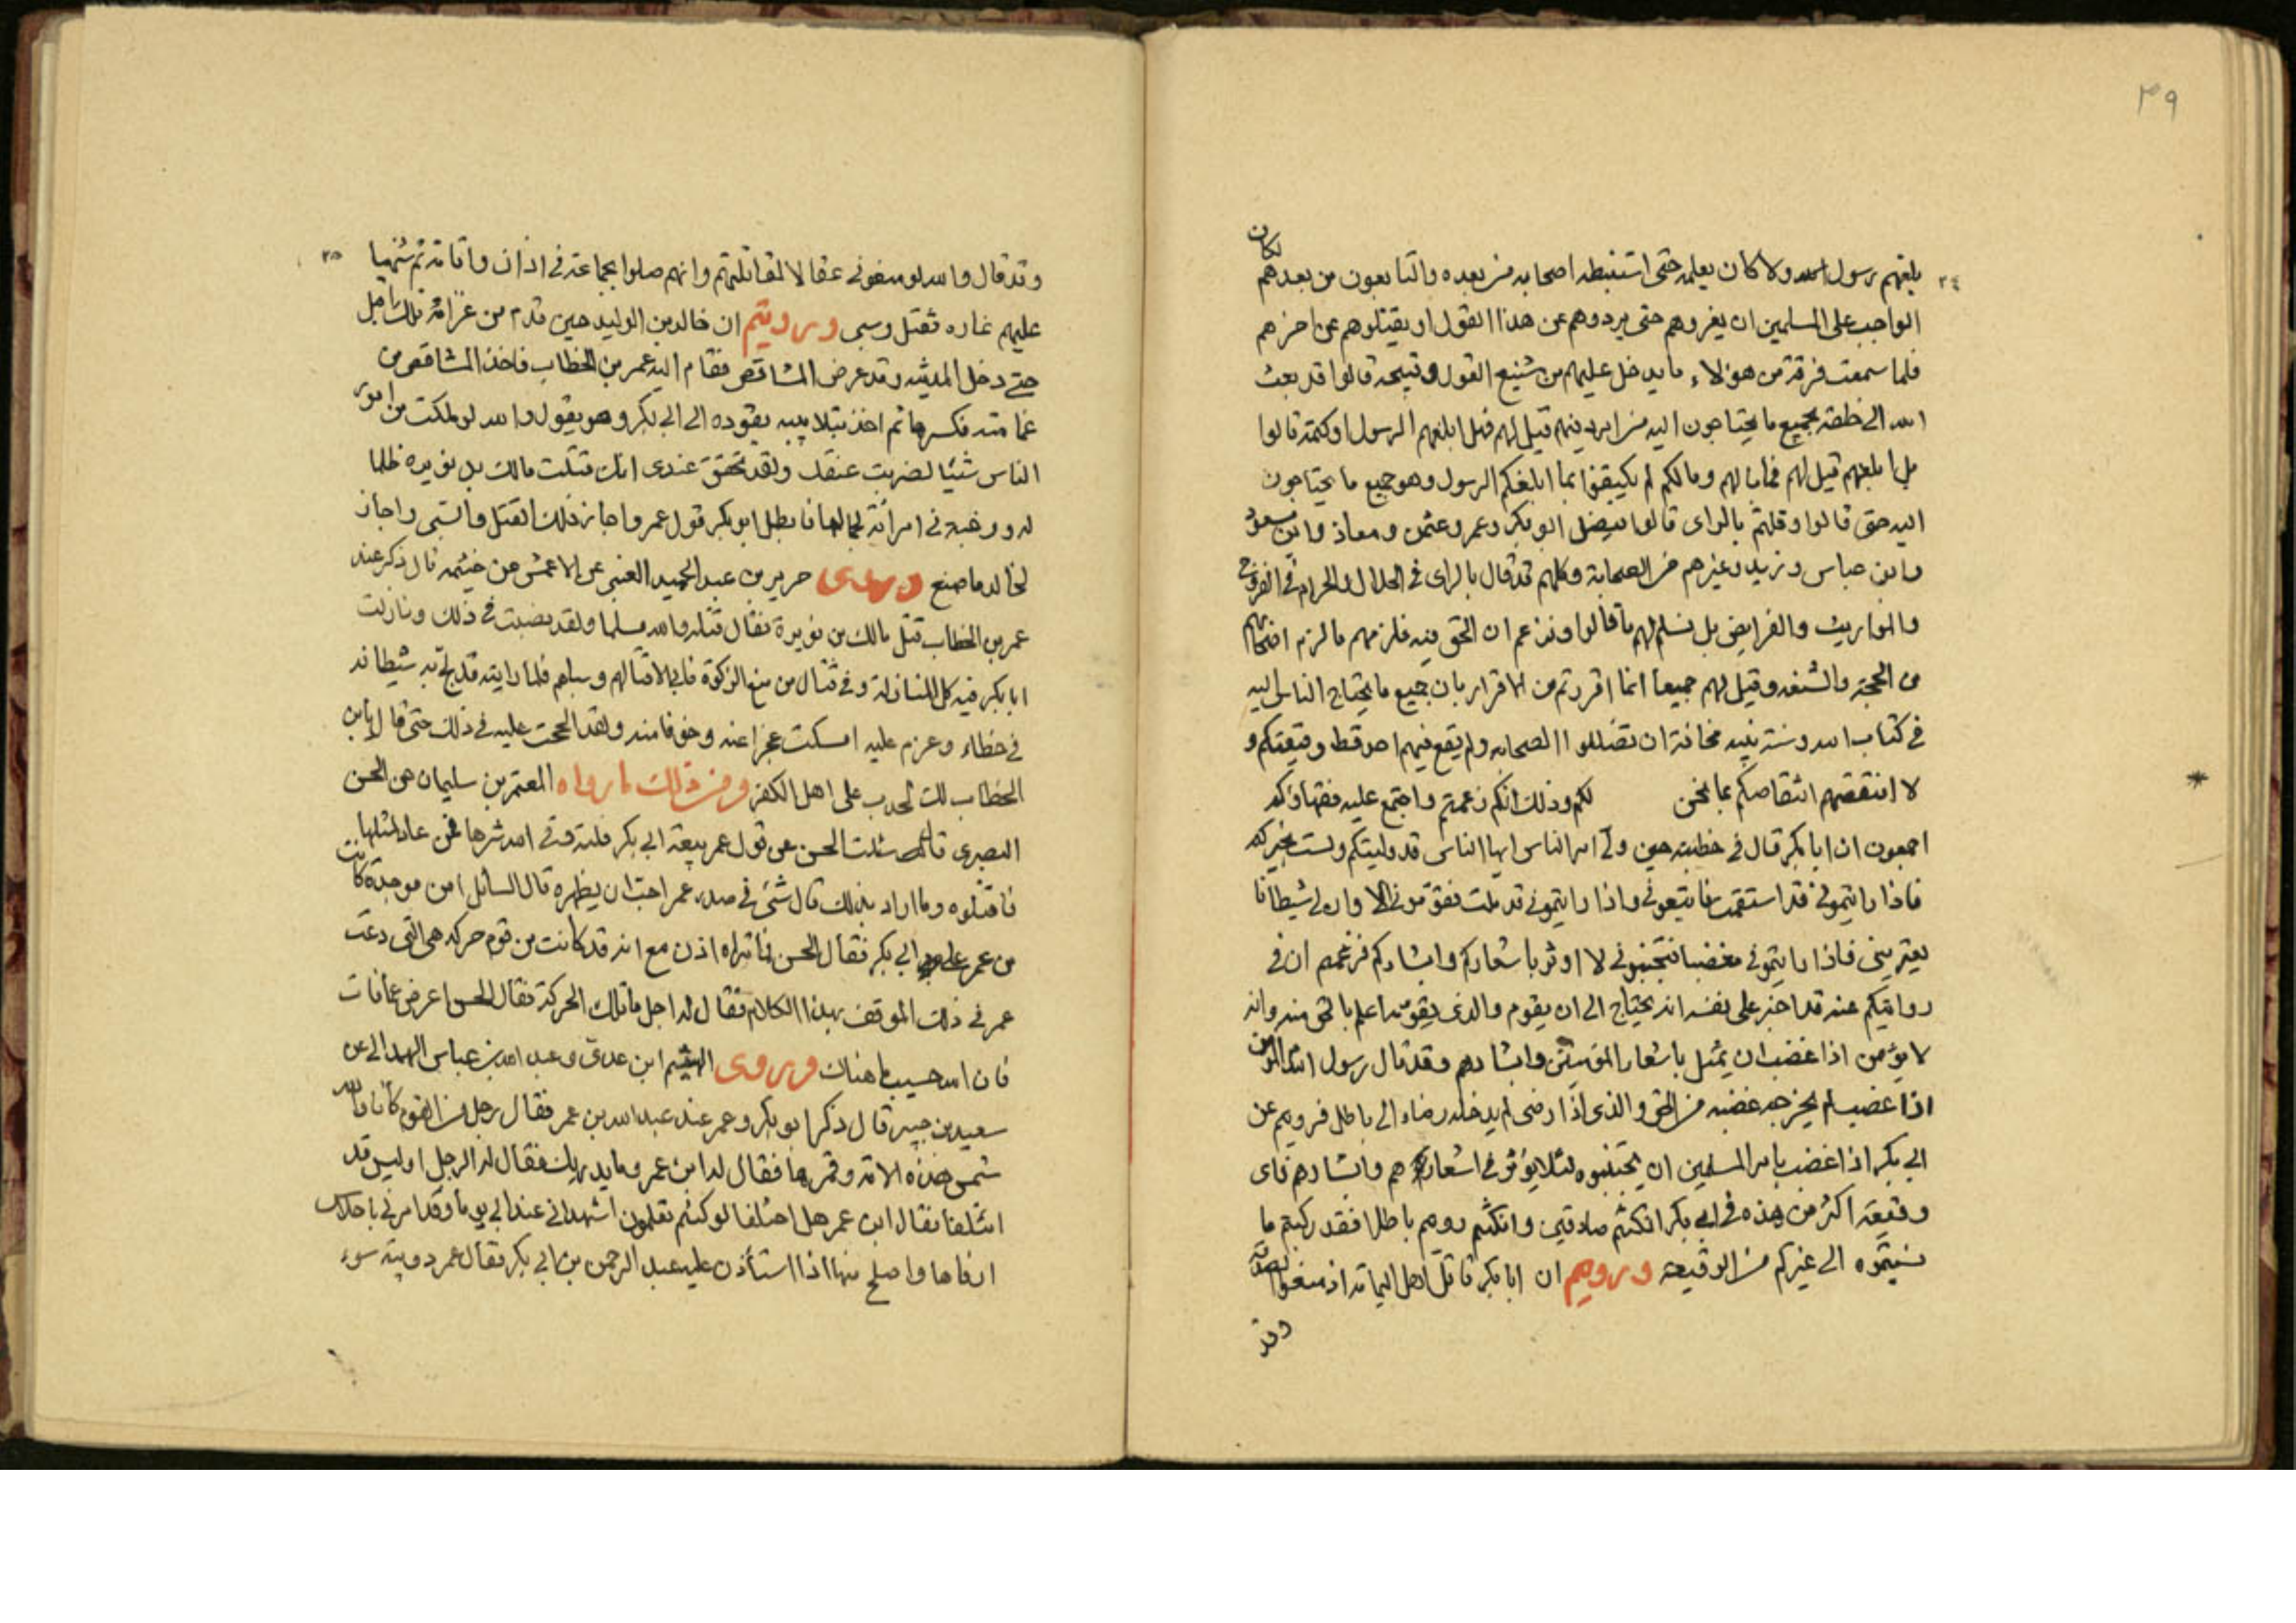 ٣٩
٢٤
يبلغهم رسول الله ولا كان يعلمه حتى استنبطه اصحابه من بعده والتابعون من بعدهم لكان
الواجب على المسلمين ان يغزوهم حتى يردوهم عن هذا القول او يقتلوهم عن اخرهم
فلما سمعت فرقة من هؤلاء ما يدخل عليهم من شنيع القول وقبيحه قالوا قد بعث
الله الى خلقه بجميع ما يحتاجون اليه من امر دينهم قيل لهم فهل ابلغهم الرسول او كتمه قالوا
بل ابلغهم قيل لهم فما بالهم وما لكم لم يكتفوا بما ابلغكم الرسول وهو جميع ما يحتاجون
اليه حتى قالوا وقلتم بالراى قالوا ابو بكر وعمر وعثمن ومعاذ وابن مسعود
وابن عباس وزيد وغيرهم من الصحابة وكلهم قد قال بالراى فى الحلال والحرام فى الفروج
والمواريث والفرايض بل نسلم لهم ما قالوا ونزعم ان الحق فيه فلزمهم ما لزم اصحابهم
من الحجة والشنعه وقيل لهم جميعا انما اقررتم من الاقرار بان جميع ما يحتاج الناس اليه
فى كتاب الله وسنة نبيه مخافة ان تضللوا الصحابه ولم يقع فيهم احد قط وقيعتكم و
لا انتقصهم انتقاصكم بما نحن لكم وذلك انكم زعمتم واجتمع عليه فقهاؤكم
اجمعون ان ابا بكر قال فى خطبته حين ولى امر الناس ايها الناس قد وليتكم ولست بخيركم
فاذا رايتمونى قد استقمت فاتبعونى واذا رايتمونى قد ملت فقومونى الا وان لى شيطانا
يعترينى فاذا رايتمونى مغضبا فتجنبونى لا اوثر باشعاركم وابشاركم فزعمتم ان فى
روايتكم عنه قد اخبر على نفسه انه يحتاج الى ان يقوم والذى يقومه اعلم بالحق منه وانه
لا يؤمن اذا غضب ان يمثل باشعار المؤمنين وابشارهم وقد قال رسول الله المؤمن
اذا غضب لم يخرجه غضبه من الحق والذى اذا رضى لم يدخله رضاه الى باطل فرويتم عن
ابى بكر اذا غضب يامر المسلمين ان يجتنبوه لئلا يؤثر فى اشعارهم وابشارهم فاى
وقيعة اكثر من هذه فى ابى بكر ان كنتم صادقين وان كنتم رويتم باطلا فقد ركبتم ما
نسبتموه الى غيركم من الوقيعة ورويتم ان ابا بكر قاتل اهل اليمامة اذ منعوا الصدقة
وقد
٢٥
وقد قال والله لو منعونى عقالا لقاتلتهم وانهم صلوا بجماعة فى اذان واقامة ثم شنها
عليهم غاره فقتل وسبى ورويتم ان خالد بن الوليد حين قدم من غزاة تلك اقبل
حتى دخل المدينه وقد غرض المشاقص فقام اليه عمر بن الخطاب فاخذ المشاقص من
عمامته فكسرها ثم اخذ بتلابيبه يقوده الى ابى بكر وهو يقول والله لو ملكت من امور
الناس شيئا لضربت عنقك ولقد تحقق عندى انك قتلت مالك بن نويره ظلما
له ورغبة فى امرأته لجمالها فابطل ابو بكر قول عمر واجاز ذلك القتل والسبى واجاز
لخالد ما صنع وروى جرير بن عبد الحميد الضبى عن الاعمش عن خيثمه قال ذكر عند
عمر بن الخطاب قتل مالك بن نويرة فقال قتله والله مسلما ولقد نصبت فى ذلك ونازلت
ابا بكر فيه كل المنازلة وفى قتال من منع الزكوة فابى الا قتالهم وسباهم فلما رايته قد لج به شيطانه
فى خطاء وعزم عليه امسكت عجزا عنه وخوفا منه ولقد الححت عليه فى ذلك حتى قال يابن
الخطاب انك لحدب على اهل الكفر ومن ذلك ما رواه المعتمر بن سليمان عن الحسن
البصرى قال سئلت الحسن عن قول عمر بيعة ابى بكر فلتة وقى الله شرها فمن عاد لمثلها
فاقتلوه وما اراد بذلك قال شئ فى صدر عمر احب ان يظهره قال السائل امن موجدة كانت
من عمر على ابى بكر فقال الحسن فما تراه اذن مع انه قد كانت من قوم حركه هى التى دعت
عمر فى ذلك الموقف بهذا الكلام فقال له الرجل ما تلك الحركة فقال الحسن اعرض عما فات
فان الله حسيب ما هناك وروى الهيثم ابن عدى وعبد الله بن عباس الهمدانى عن
سعيد بن جبير قال ذكر ابو بكر وعمر عند عبد الله بن عمر فقال رجل من القوم كانا والله
شمس هذه الامة وقمرها فقال له ابن عمر وما يدريك فقال له الرجل اوليس قد
ائتلفا فقال ابن عمر بل اختلفا لو كنتم تعلمون اشهد انى عند ابى يوما وقد امرنى
اذا استأذن عليه عبد الرحمن بن ابى بكر فقال عمر دويبة سوء